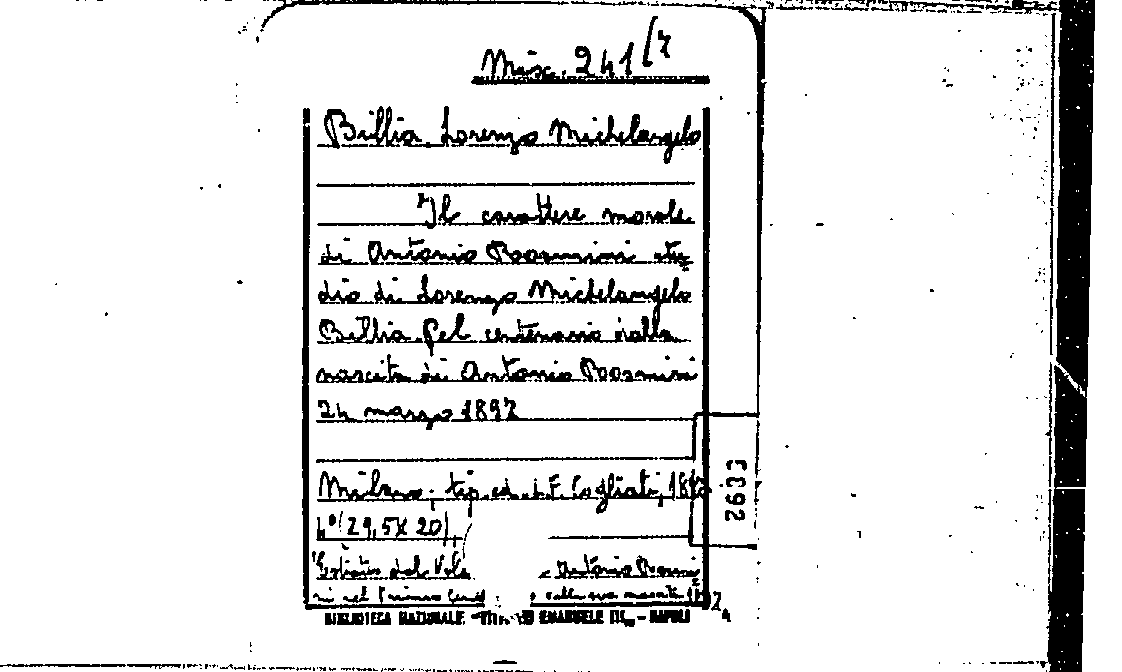 Misc. 241/7
Billia Lorenzo Michelangelo
Il carattere morale
di Antonio Rosmini stu
dio di Lorenzo Michelangelo
Billia pel centenario dalla
nascita di Antonio Rosmini
24 marzo 1897
Milano, tip. ed. L.F. Cogliati,
4º (29,5 X 20)
Estratto dal Vol
Antonio Rosmi
ni nel Primo Cent
dalla sua nascita
BIBLIOTECA NAZIONALE EMANUELE III - NAPOLI